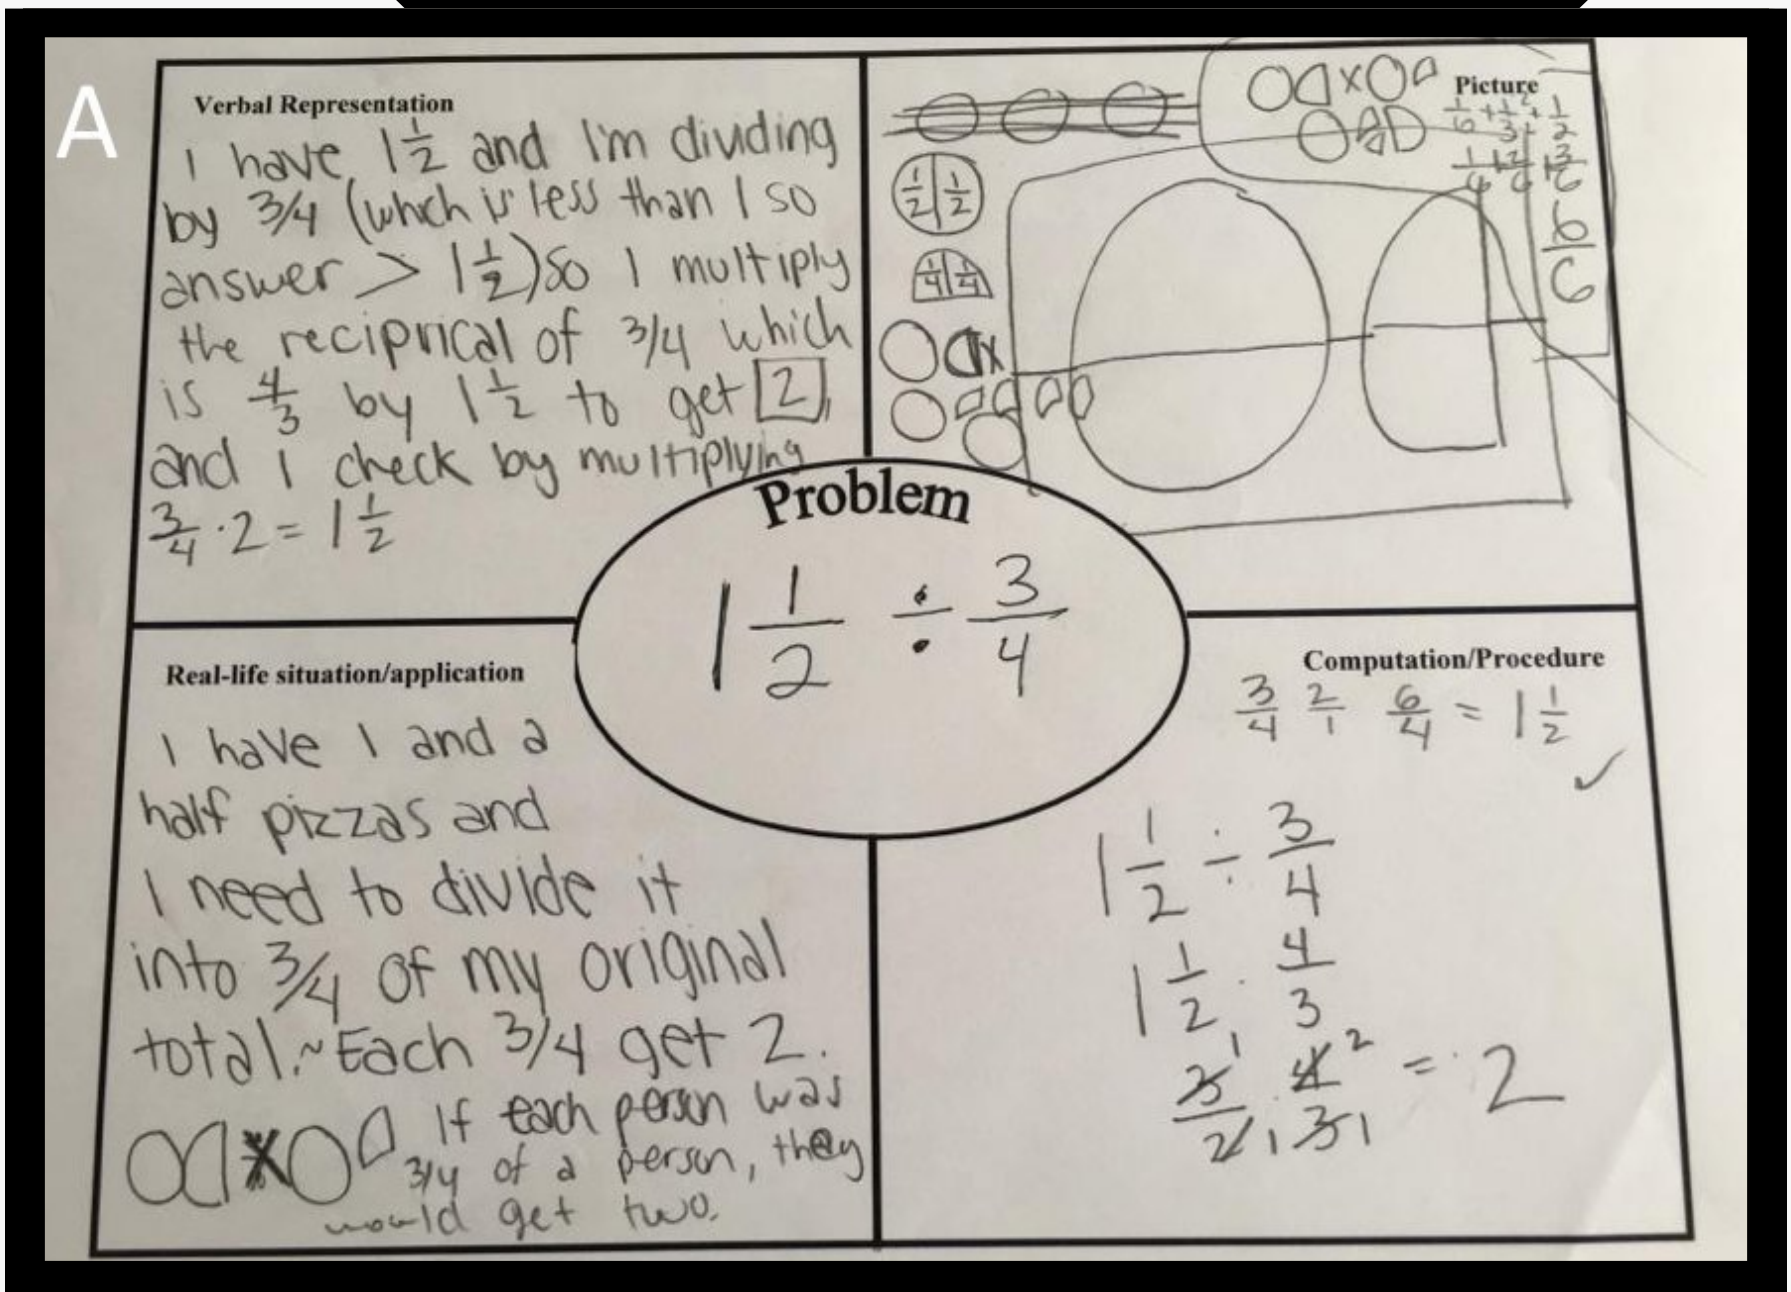 A
Verbal Representation
I have 1 1/2 and I'm dividing
by 3/4 (which is less than 1 so
answer > 1 1/2) so I multiply
the reciprical of 3/4 which
is 4/3 by 1 1/2 to get 2,
and I check by multiplying
3/4 · 2 = 1 1/2
Picture
1/6 + 1/3 + 1/2
6/6
1/2 1/2
1/4 1/4
Problem
1 1/2 ÷ 3/4
Real-life situation/application
I have 1 and a
half pizzas and
I need to divide it
into 3/4 of my original
total.~Each 3/4 get 2.
If each person was
3/4 of a person, they
would get two.
Computation/Procedure
3/4 2/1 6/4 = 1 1/2 ✓
1 1/2 ÷ 3/4
1 1/2 · 4/3
3/2 · 4/3 = 2